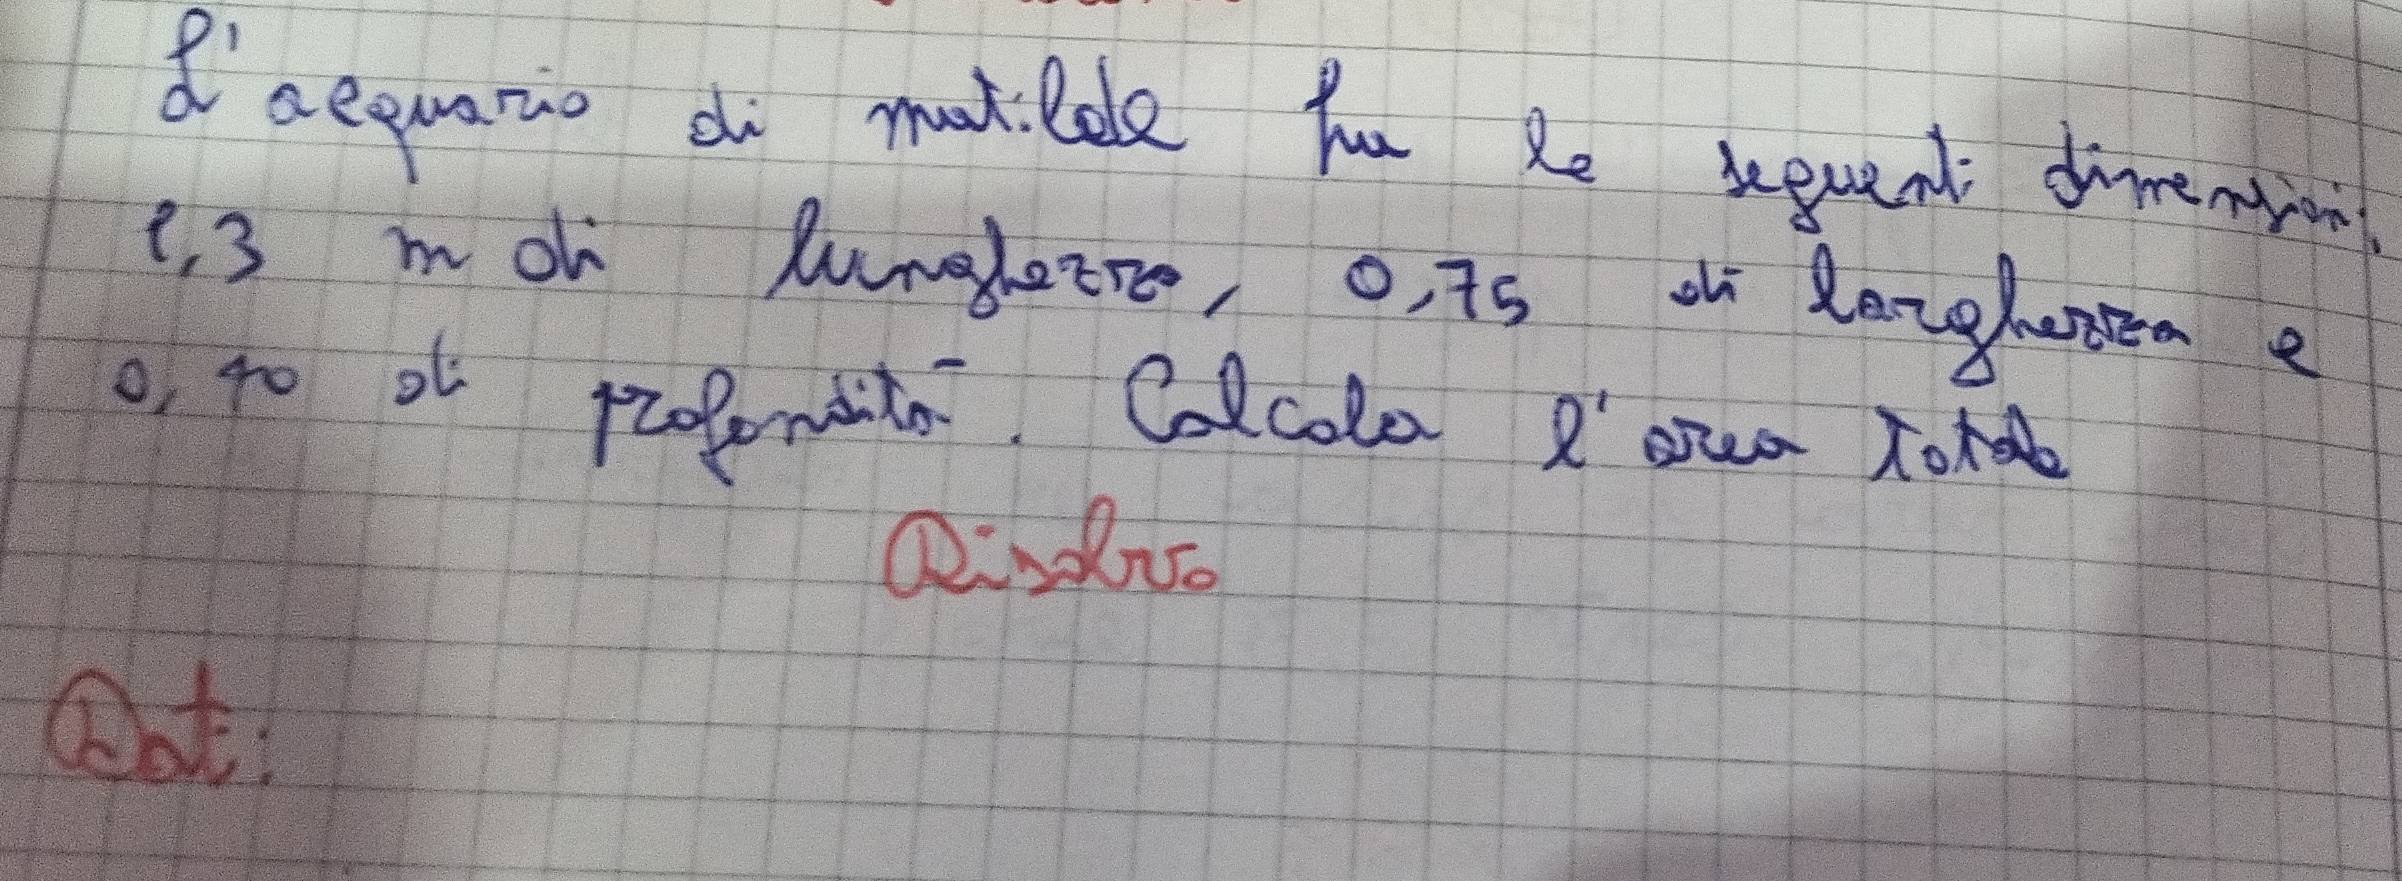 L'acquario di matilde ha le seguenti dimensioni,
1,3 m di lunghezza, 0,75 di larghezza e
0,40 di profondità. Calcola l'area totale
Risolvo
Dati: